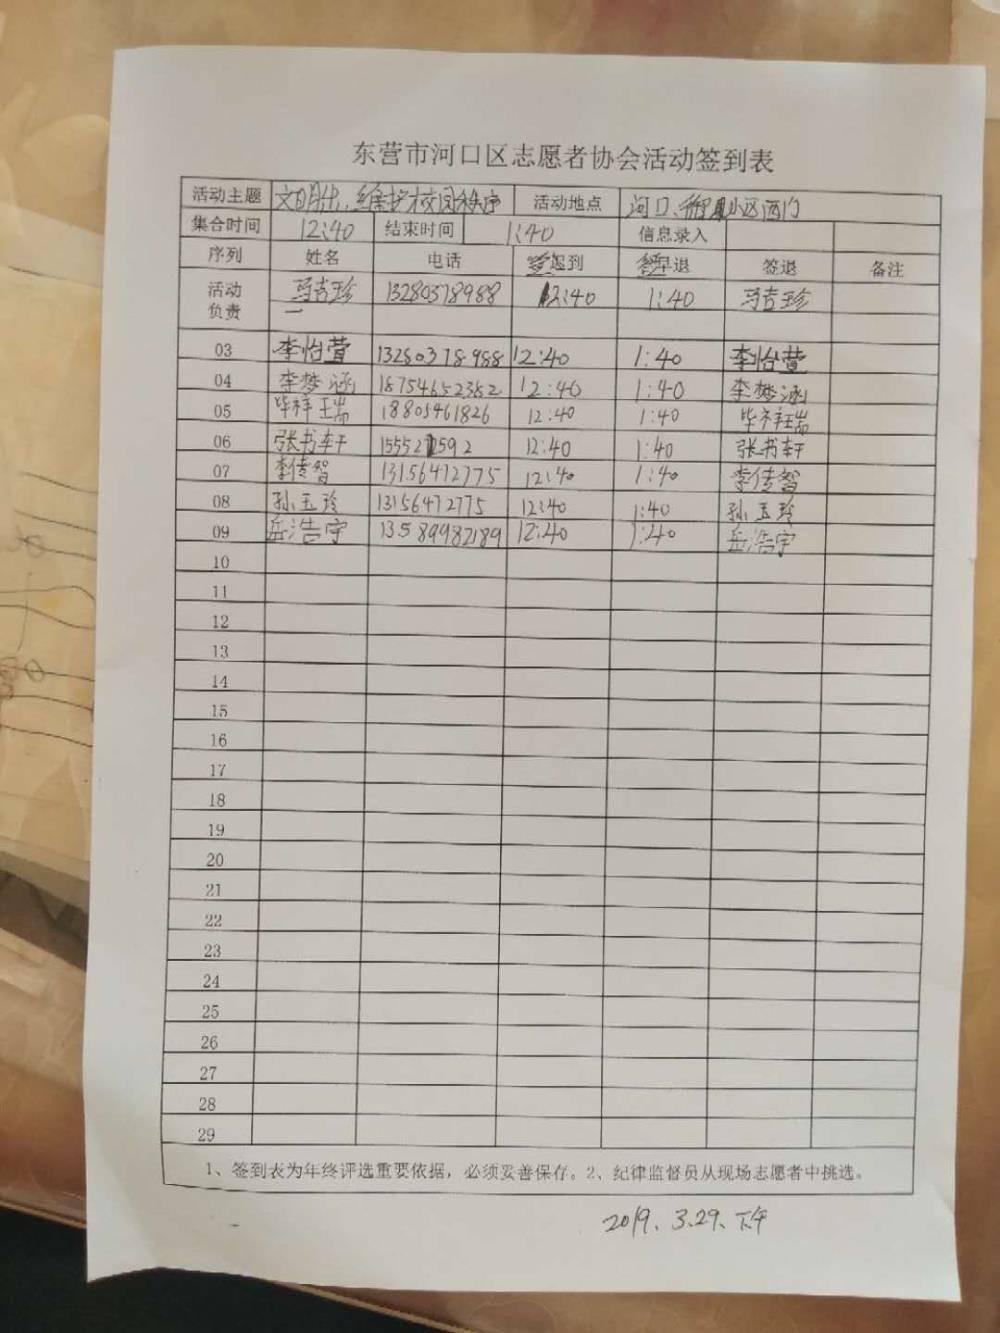 东营市河口区志愿者协会活动签到表
活动主题 文明出,维护校园秩序 活动地点 河口、小区西门
集合时间 12:40 结束时间 1:40 信息录入
序列 姓名 电话 起到 早退 签退 备注
活动负责 马吉珍 13280378988 12:40 1:40 马吉珍
03 李怡萱 13280378988 12:40 1:40 李怡萱
04 李梦涵 18754652382 12:40 1:40 李梦涵
05 毕梓瑞 18805461826 12:40 1:40 毕梓瑞
06 张书轩 12:40 1:40 张书轩
07 李传智 13156472775 12:40 1:40 李传智
08 孙玉玲 13156472775 12:40 1:40 孙玉玲
09 岳浩宇 13589982189 12:40 1:40 岳浩宇
10
11
12
13
14
15
16
17
18
19
20
21
22
23
24
25
26
27
28
29
1、签到表为年终评选重要依据，必须妥善保存。2、纪律监督员从现场志愿者中挑选。
2019、3.29、下午